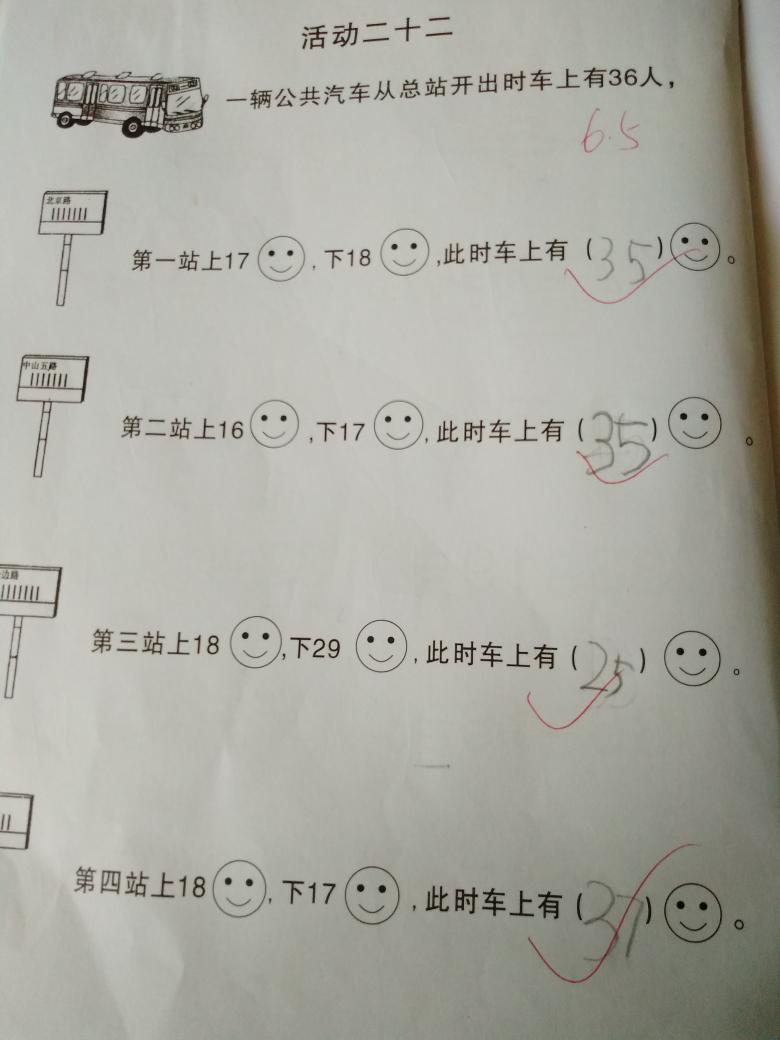 活动二十二
一辆公共汽车从总站开出时车上有36人，
6.5
北京路
第一站上17，下18，此时车上有（35）。
中山五路
第二站上16，下17，此时车上有（35）。
边路
第三站上18，下29，此时车上有（25）。
第四站上18，下17，此时车上有（37）。